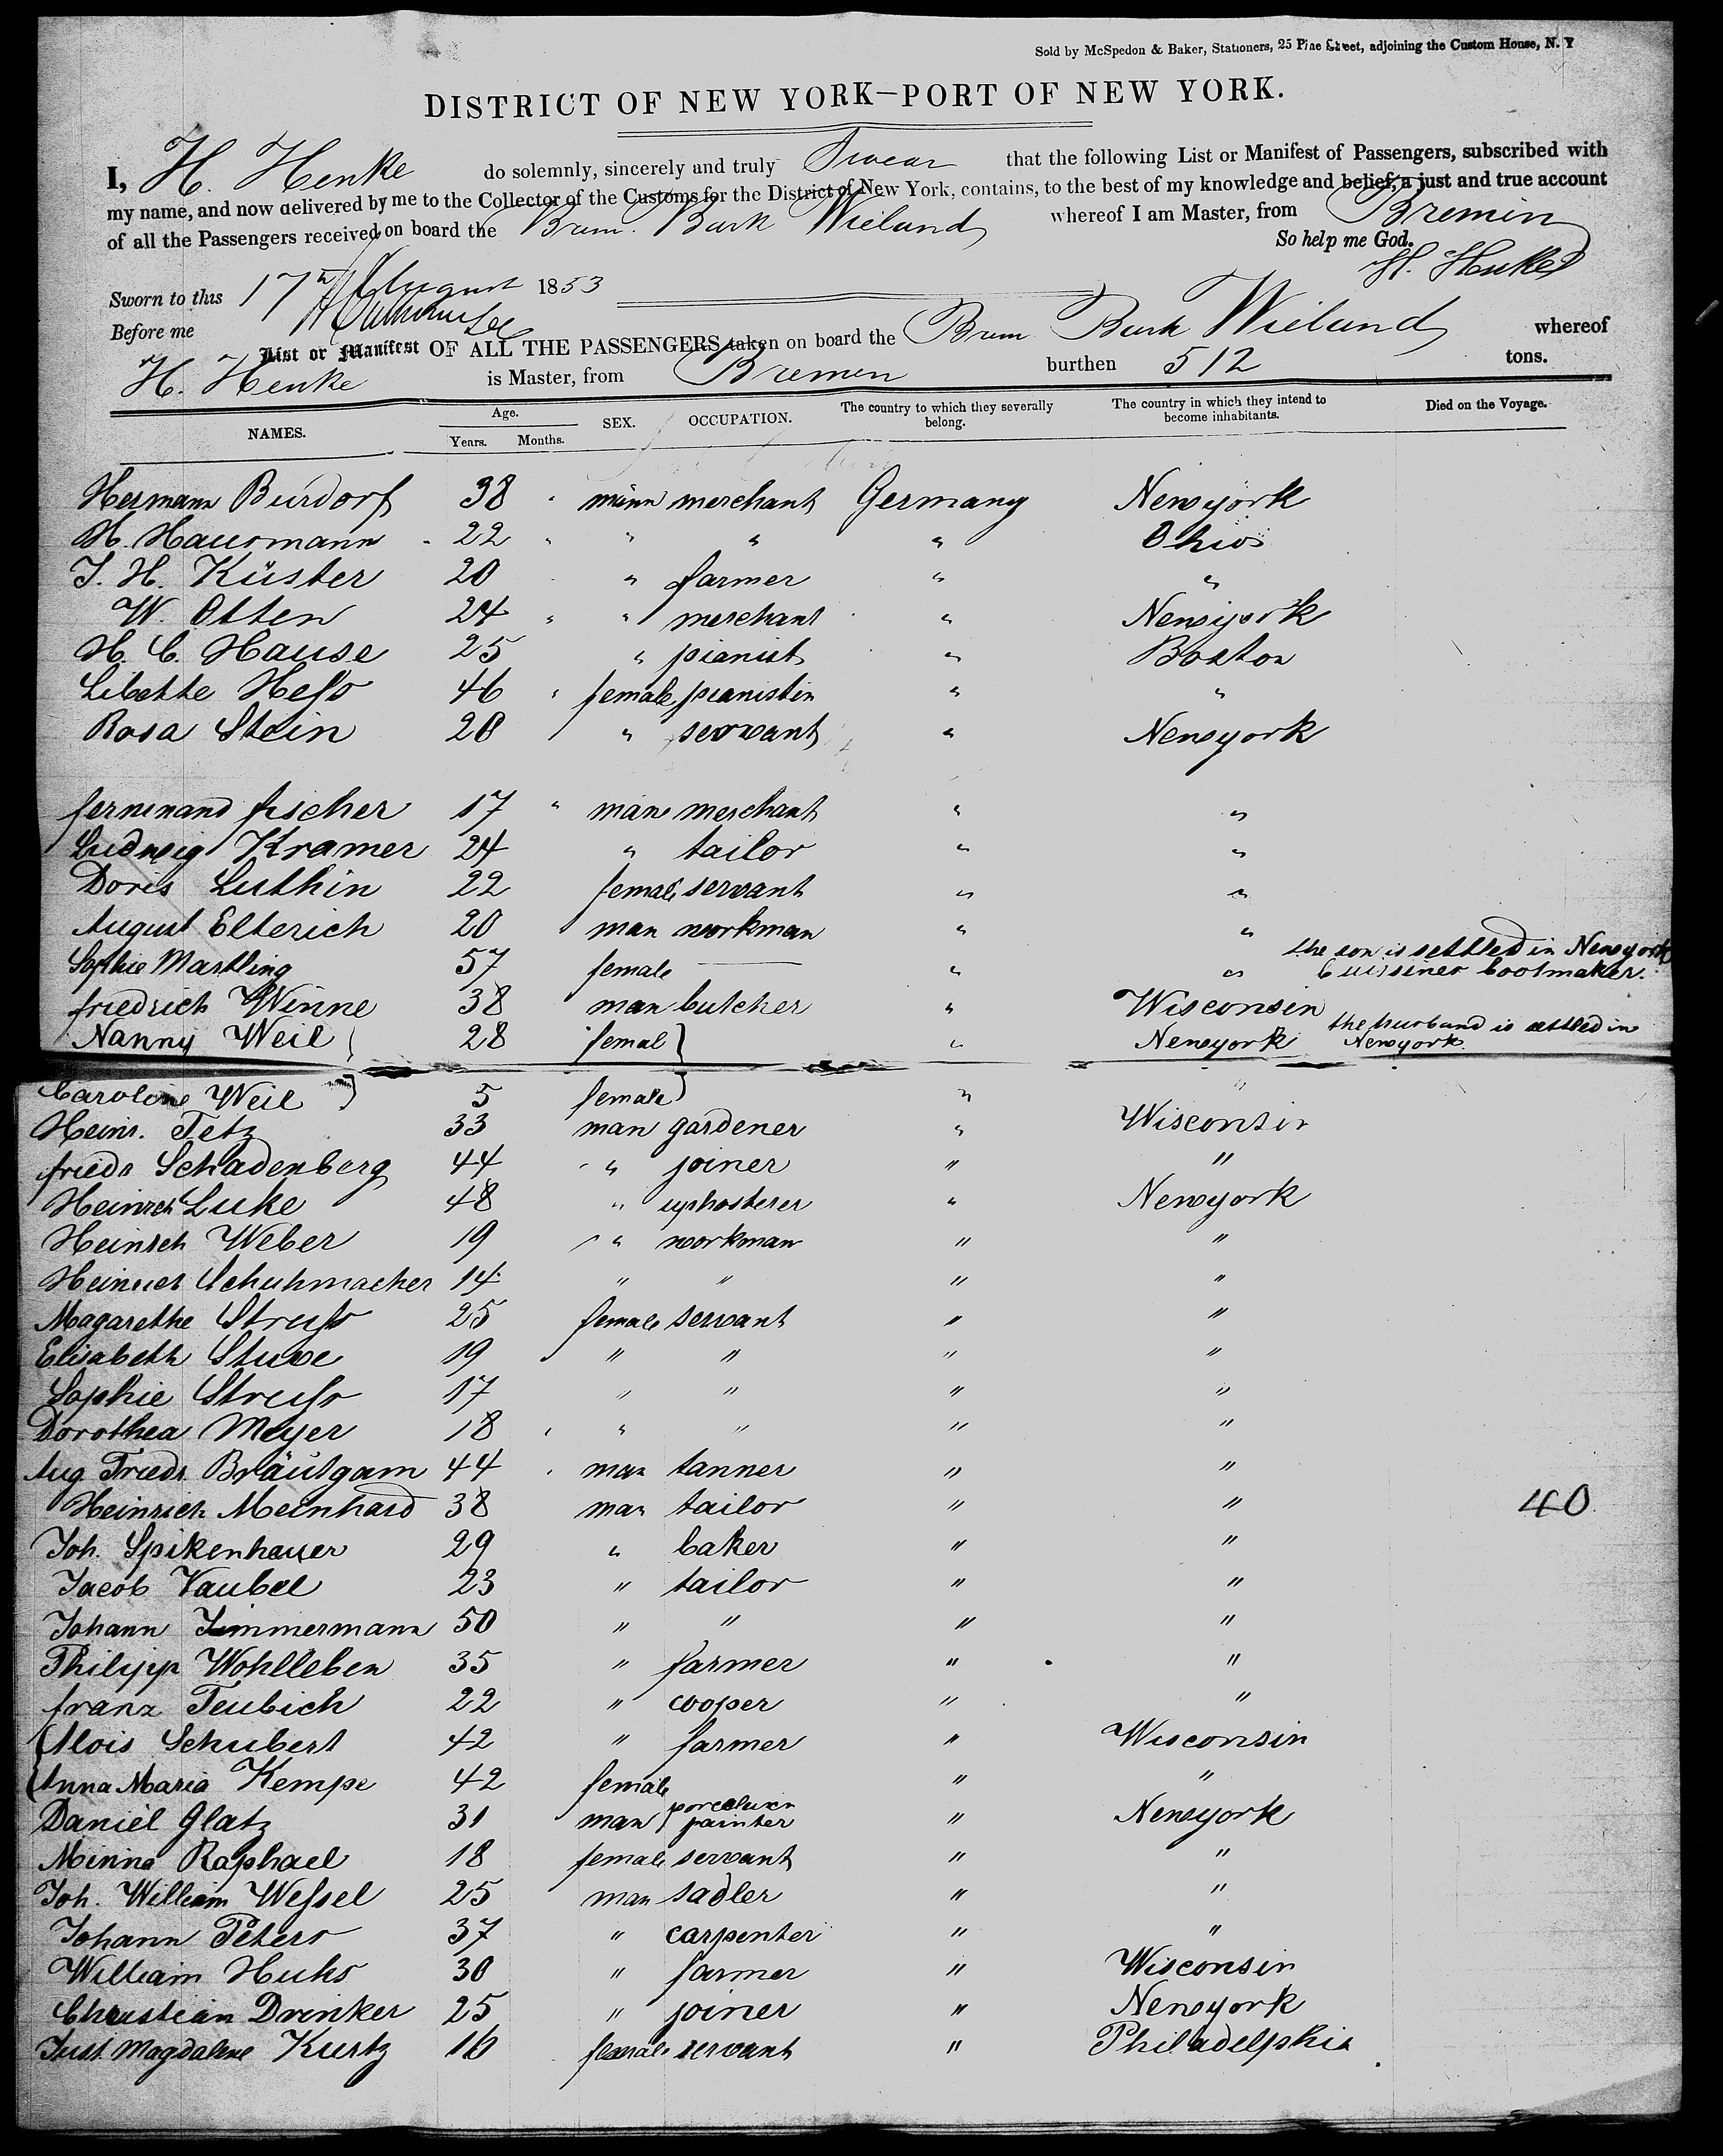 Sold by McSpedon & Baker, Stationers, 25 Pine Street, adjoining the Custom House, N. Y
DISTRICT OF NEW YORK—PORT OF NEW YORK.
I, H. Henke do solemnly, sincerely and truly Swear that the following List or Manifest of Passengers, subscribed with
my name, and now delivered by me to the Collector of the Customs for the District of New York, contains, to the best of my knowledge and belief, a just and true account
of all the Passengers received on board the Brem. Bark Wieland whereof I am Master, from Bremin
So help me God.
H. Henke
Sworn to this 17th August 1853
Before me
List or Manifest OF ALL THE PASSENGERS taken on board the Brem Bark Wieland whereof
H. Henke is Master, from Bremen burthen 512 tons.
NAMES. Age. Years. Months. SEX. OCCUPATION. The country to which they severally belong. The country in which they intend to become inhabitants. Died on the Voyage.
Hermann Burdorf 38 " mann merchant Germany Newyork
H. Hausmann 22 " " " " Ohio
J. H. Küster 20 " farmer " "
W. Otten 24 " " merchant " Newyork
H. C. Hause 25 " pianist " Boston
Libette Heſs 46 " female pianistin " "
Rosa Stein 20 " servant " Newyork
ferninand fischer 17 " man merchant " "
Ludweig Kramer 24 " tailor " "
Doris Luthin 22 female servant " "
August Elterich 20 man workman " "
Sophie Mastling 57 female — " " the son is settled in Newyork
bootmaker.
friedrich Winne 38 man butcher " Wisconsin
Nanny Weil 28 femal " Newyork the husband is settled in
Newyork.
Caroline Weil 5 female " "
Heinr. Tetz 33 man gardener " Wisconsin
friedr Schadenberg 44 " joiner " "
Heinrch Luke 48 " uphosterer " Newyork
Heinrch Weber 19 " workman " "
Heinrich Schuhmacher 14 " " " "
Magarethe Struſs 25 female servant " "
Elisabeth Stuwe 19 " " " "
Sophie Struſs 17 " " " "
Dorothea Meyer 18 " " " "
Aug. Friedr. Bräutgam 44 man tanner " "
Heinrich Meinhard 38 man tailor " " 40
Joh. Spikenhauer 29 " baker " "
Jacob Vaubel 23 " tailor " "
Johann Zimmermann 50 " " " "
Philipp Wohlleben 35 " farmer " "
franz Teubich 22 " cooper " "
Alois Schubert 42 " farmer " Wisconsin
Anna Maria Kempe 42 female " "
Daniel Glatz 31 man porcelain painter " Newyork
Minna Raphael 18 female servant " "
Joh. William Weſsel 25 man sadler " "
Johann Peters 37 " carpenter " "
William Huhs 30 " farmer " Wisconsin
Christian Drinker 25 " joiner " Newyork
Just. Magdalene Kurtz 16 female servant " Philadelphia